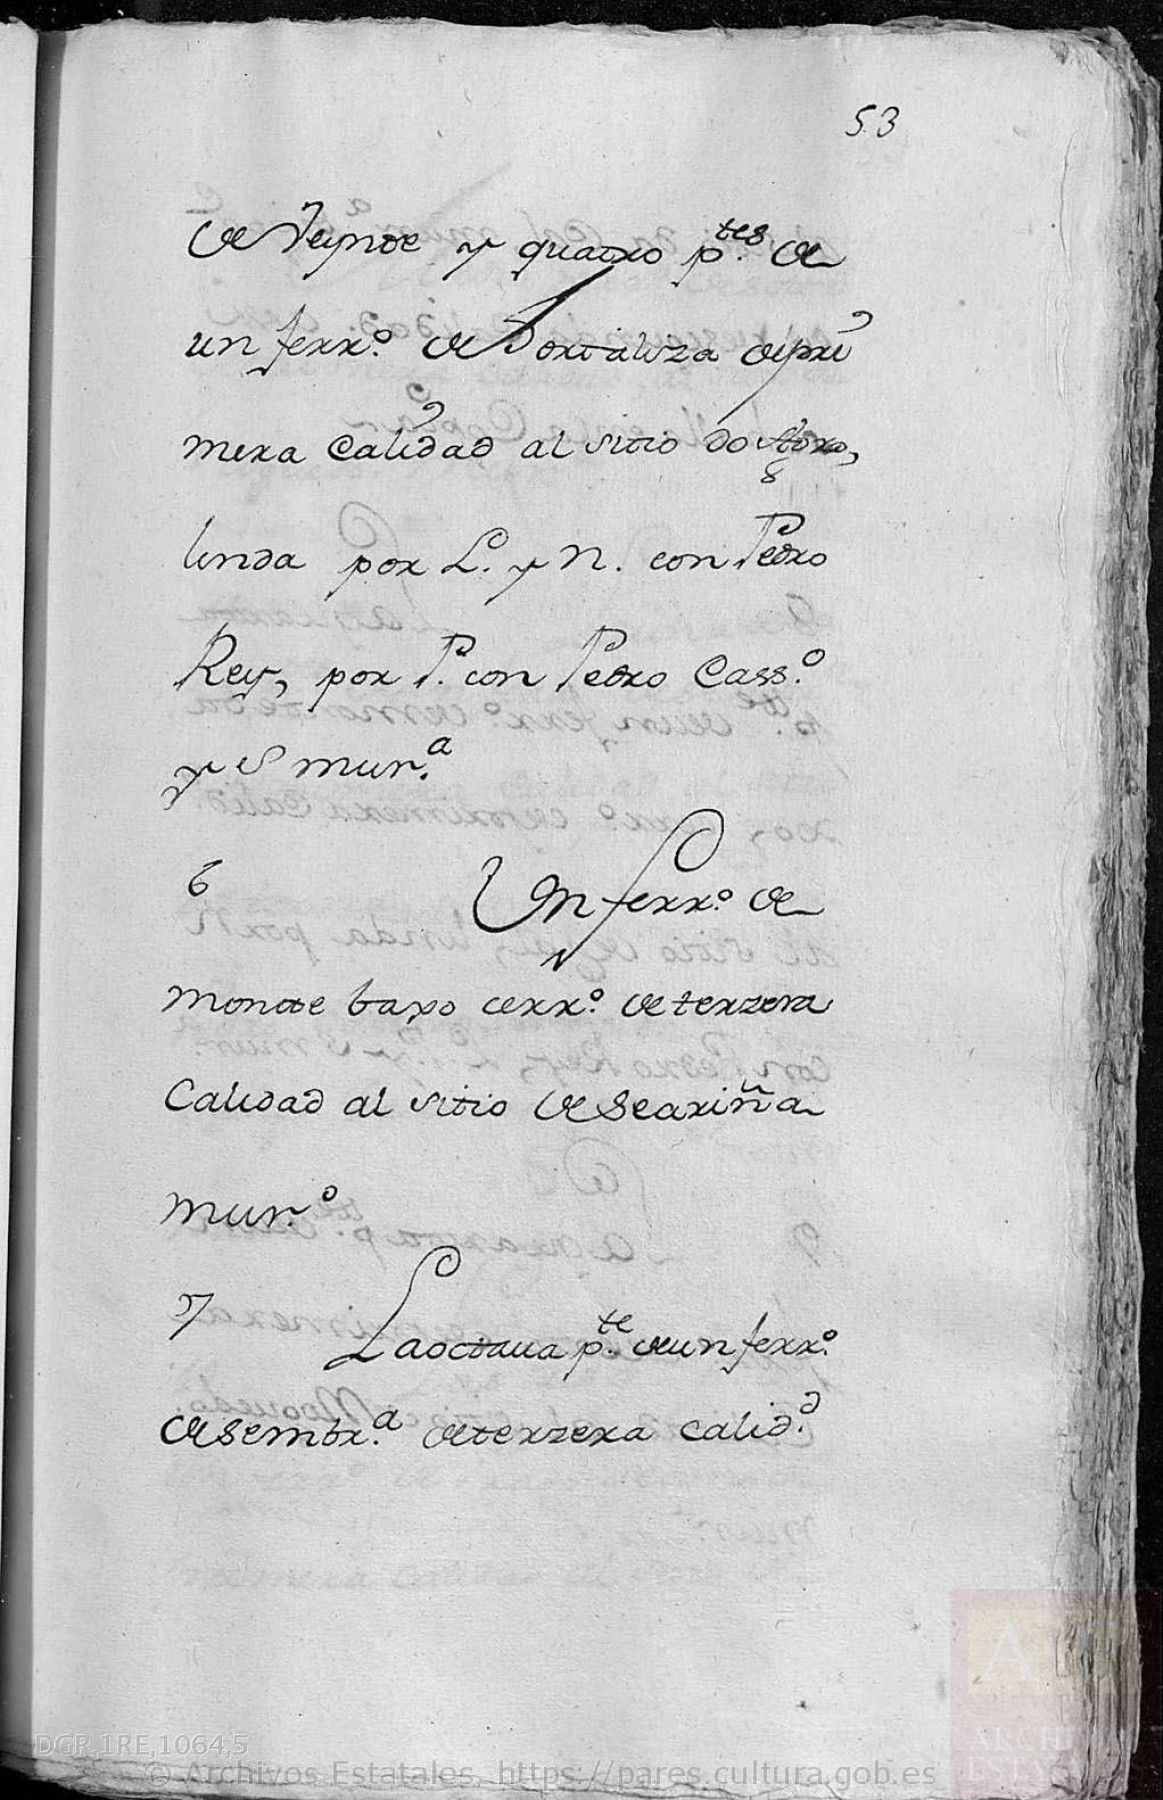 53
de Veynte y quatro p.tes de
un ferr.o de Hortaliza de pri
mera Calidad al sitio do
linda por L. y N. con Pedro
Rey, por P. con Pedro Cass.o
y S mur.a
6 Un ferr.o de
monte baxo cerr.o de terzera
Calidad al sitio de Seariña
mur.o
7
La octaua p.te de un ferr.o
de sembr.a de terzera calid.d
DGR,1RE,1064,5
© Archivos Estatales, https://pares.cultura.gob.es